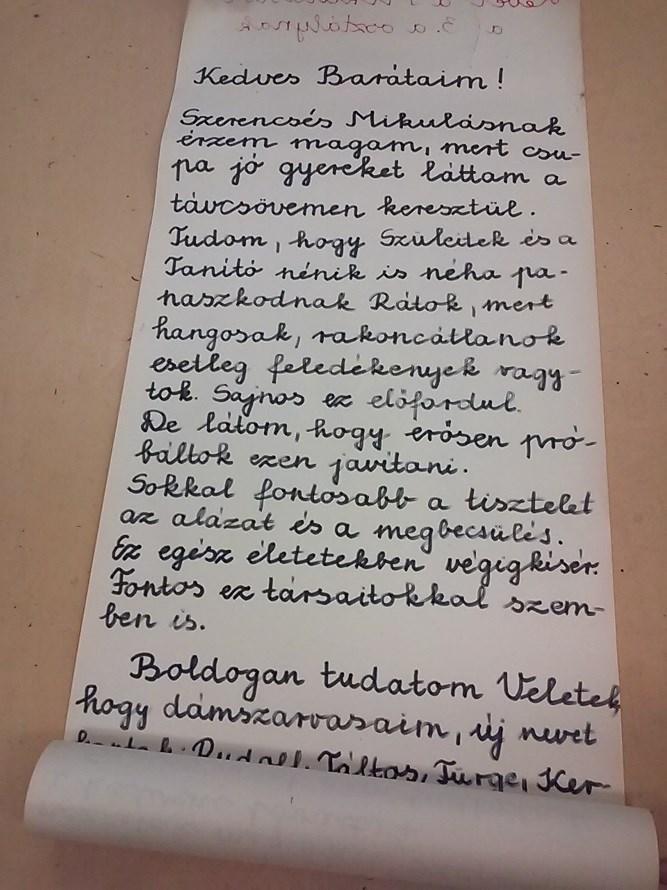 a 3. a osztálynak
Kedves Barátaim!
Szerencsés Mikulásnak
érzem magam, mert csu-
pa jó gyereket láttam a
távcsövemen keresztül.
Tudom, hogy Szüleitek és a
Tanító nénik is néha pa-
naszkodnak Rátok, mert
hangosak, rakoncátlanok
esetleg feledékenyek vagy-
tok. Sajnos ez előfordul.
De látom, hogy erősen pró-
báltok ezen javítani.
Sokkal fontosabb a tisztelet
az alázat és a megbecsülés.
Ez egész életetekben végigkísér.
Fontos ez társaitokkal szem-
ben is.
Boldogan tudatom Veletek
hogy dámszarvasaim, új nevet
Rudolf, Táltos, Fürge, Ker-